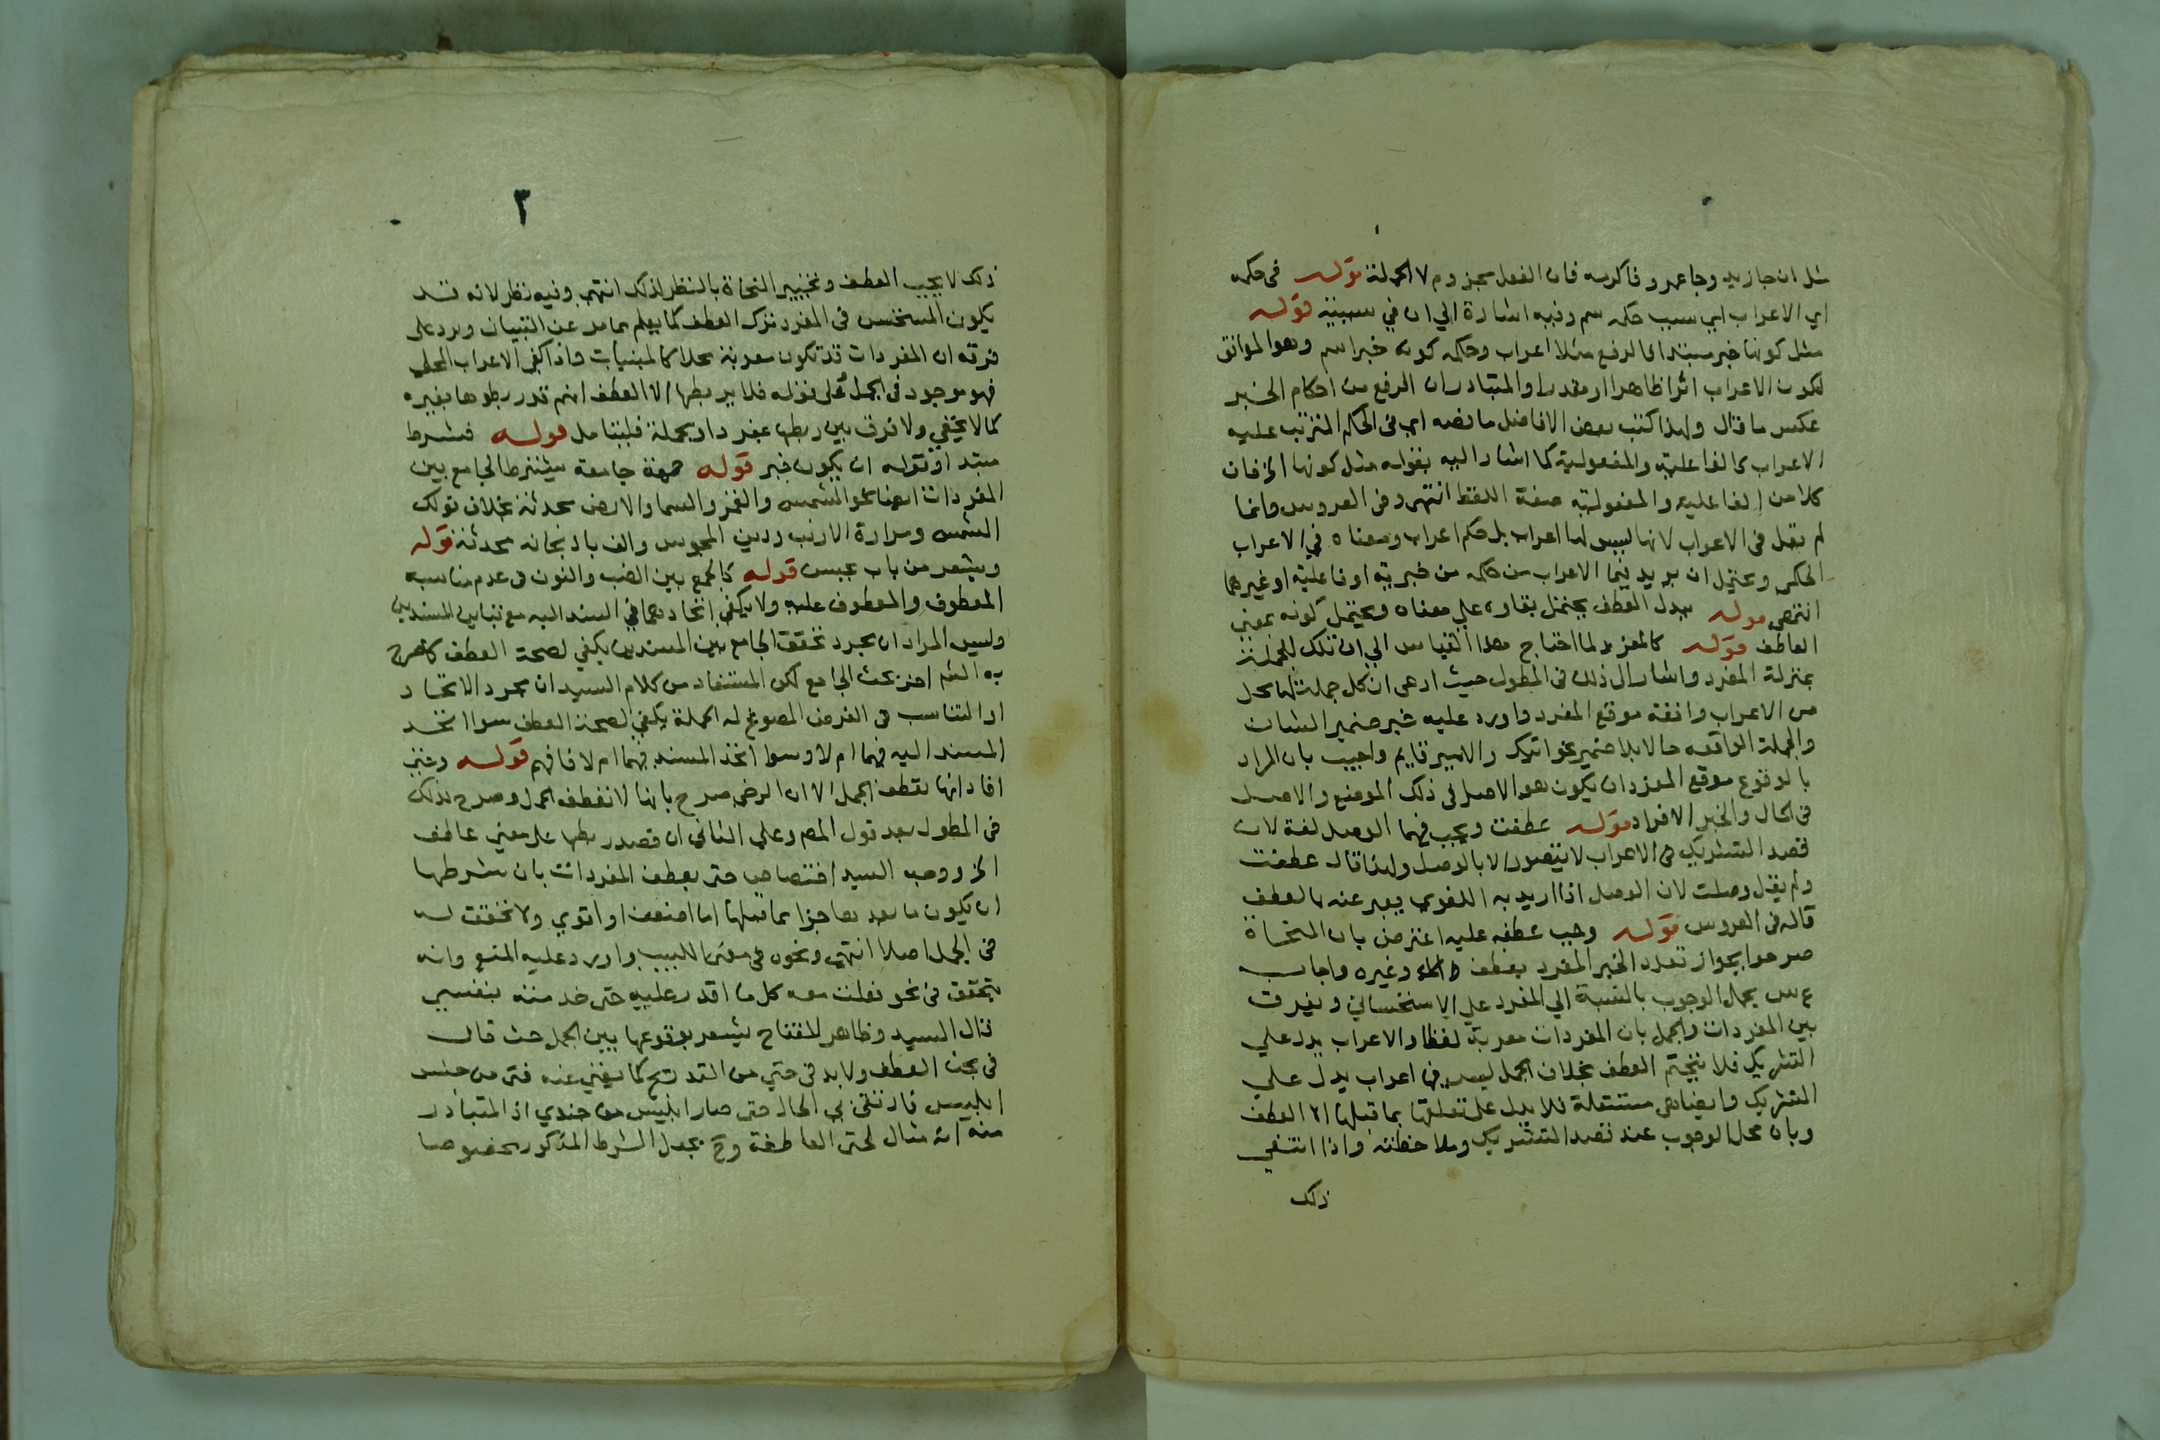 مثل ان جازيد وجا عمرو فاكرمه فان الفعل مجزوم لا الجملة قوله في حكمه
اي الاعراب اي سبب حكمه سم وفيه اشارة الي ان في سببية قوله
مثل كونها خبر مبتدا فالرفع مثلا اعراب وحكمه كونه خبرا سم وهو الموافق
لكون الاعراب اثرا ظاهرا او مقدرا والمتبادر ان الرفع من احكام الخبر
عكس ما قال ولهذا كتب بعض الافاضل ما نصه اي في الحكم المترتب عليه
الاعراب كالفاعلية والمفعولية كما اشار اليه بقوله مثل كونها الخ فان
كلا من الفاعلية والمفعولية صفة اللفظ انتهي وفي العروس وانما
لم يقل في الاعراب لانها ليس لها اعراب بل حكم اعراب ومعناه في الاعراب
الحكمي ويحتمل ان يريد فيما الاعراب من حكمه من خبرية او فاعلية او غيرهما
انتهي قوله يدل العطف يحتمل بقاوه علي معناه ويحتمل كونه بمعني
العاطف قوله كالمفرد لما احتاج هذا القياس الي ان تلك الجملة
بمنزلة المفرد واشار الي ذلك في المطول حيث ادعي ان كل جملة لها محل
من الاعراب واقعة موقع المفرد واورد عليه خبر ضمير الشان
والجملة الواقعه حالا بلا ضمير نحو اتيتك والامير قايم واجيب بان المراد
بالوقوع موقع المفرد ان يكون هو الاصل في ذلك الموضع والاصل
في الحال والخبر الافراد قوله عطفت ويجب فيها الوصل لغة لان
قصد التشريك في الاعراب لا يتصور الا بالوصل ولهذا قال عطفت
ولم يقل وصلت لان الوصل اذا اريد به اللغوي يعبر عنه بالعطف
قاله في العروس قوله وجب عطفه عليه اعترض بان النحاة
صرحوا بجواز تعدد الخبر المفرد بعطف وغيره واجاب
ع س بحمل الوجوب بالنسبة الي المفرد علي الاستحساني ويفرق
بين المفردات والجمل بان المفردات معربة لفظا والاعراب يدل علي
التشريك فلا يتحتم العطف بخلاف الجمل ليس فيها اعراب يدل علي
التشريك وايضا هي مستقلة فلا يدل علي تعلقها بما قبلها الا العطف
وبان محل الوجوب عند قصد التشريك وملاحظته واذا انتفي
ذلك
٣
ذلك لا يجب العطف وتخيير النحاة بالنظر لذلك انتهي وفيه نظر لانه قد
يكون المستحسن في المفرد ترك العطف كما يعلم مما مر عن التبيان ويرد علي
فرقه ان المفردات قد تكون معربة محلا كالمبنيات واذا كفي الاعراب المحلي
فهو موجود في الجمل علي قوله فلا يربطها الا العطف انهم قد ربطوها بغيره
كما لا يخفي ولا فرق بين ربطها بمفرد او بجملة فليتامل قوله فشرط
مبتدا وقوله ان يكون خبر قوله جهة جامعة يشترط الجامع بين
المفردات ايضا نحو الشمس والقمر والسما والارض محدثة بخلاف قولك
الشمس ومرارة الارنب ودين المجوس والف باذنجانه محدثة قوله
ويشعر من باب عبس قوله كالجمع بين الضب والنون في عدم مناسبه
المعطوف والمعطوف عليه ولا يكفي اتحادهما في المسند اليه مع تباين المسندين
وليس المراد ان مجرد تحقق الجامع بين المسندين يكفي لصحة العطف كما صرح
به الشم اخر بحث الجامع لكن المستفاد من كلام السيد ان مجرد الاتحاد
او التناسب في الغرض المصوغ له الجملة يكفي لصحة العطف سوا اتحد
المسند اليه فيهما ام لا وسوا اتحد المسند فيهما ام لا فافهم قوله وحتي
افاد انها تعطف الجمل الا ان الرضي صرح بانها لا تعطف الجمل وصرح بذلك
في المطول بعد قول المصر وعلي الثاني ان قصد ربطها علي معني عاطف
الخ ووجه السيد اختصاص حتي بعطف المفردات بان شرطها
ان يكون ما بعدها جزا مما قبلها اما اضعف او اقوي ولا تحقق له
في الجمل اصلا انتهي ونحوه في مغني اللبيب واورد عليه المنع وانه
يتحقق في نحو فعلت معه كل ما اقدر عليه حتي خدمته بنفسي
قال السيد وظاهر المفتاح يشعر بوقوعها بين الجمل حيث قال
في بحث العطف ولابد في حتي من التدريج كما ينبي عنه فتي من جند
ابليس فارتقي بي الحال حتي صار ابليس من جندي اذ المتبادر
منه انه مثال لحتي العاطفة وح يجعل الشرط المذكور مخصوصا